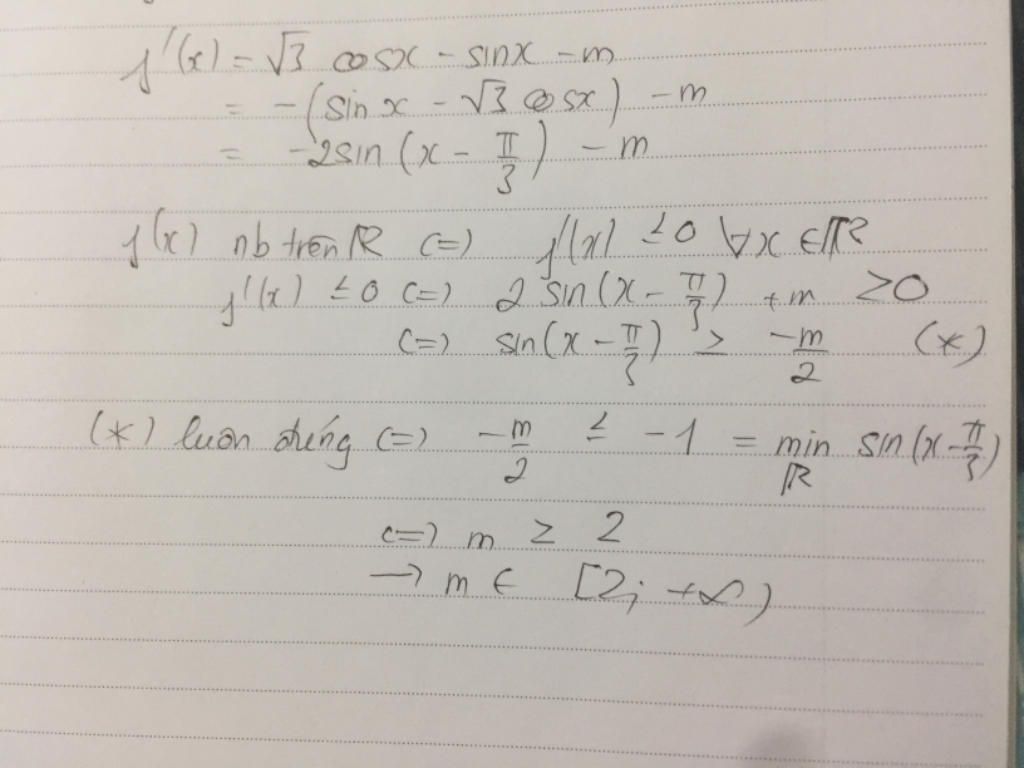 f'(x) = √3 cosx - sinx - m
= -(sin x - √3 cosx) - m
= -2sin(x - π/3) - m
f(x) nb trên ℝ <=> f'(x) ≤ 0 ∀x ∈ ℝ
f'(x) ≤ 0 <=> 2 sin(x - π/3) + m ≥ 0
<=> sin(x - π/3) ≥ -m/2 (*)
(*) luôn đúng <=> -m/2 ≤ -1 = min sin(x - π/3)
ℝ
<=> m ≥ 2
→ m ∈ [2; +∞)